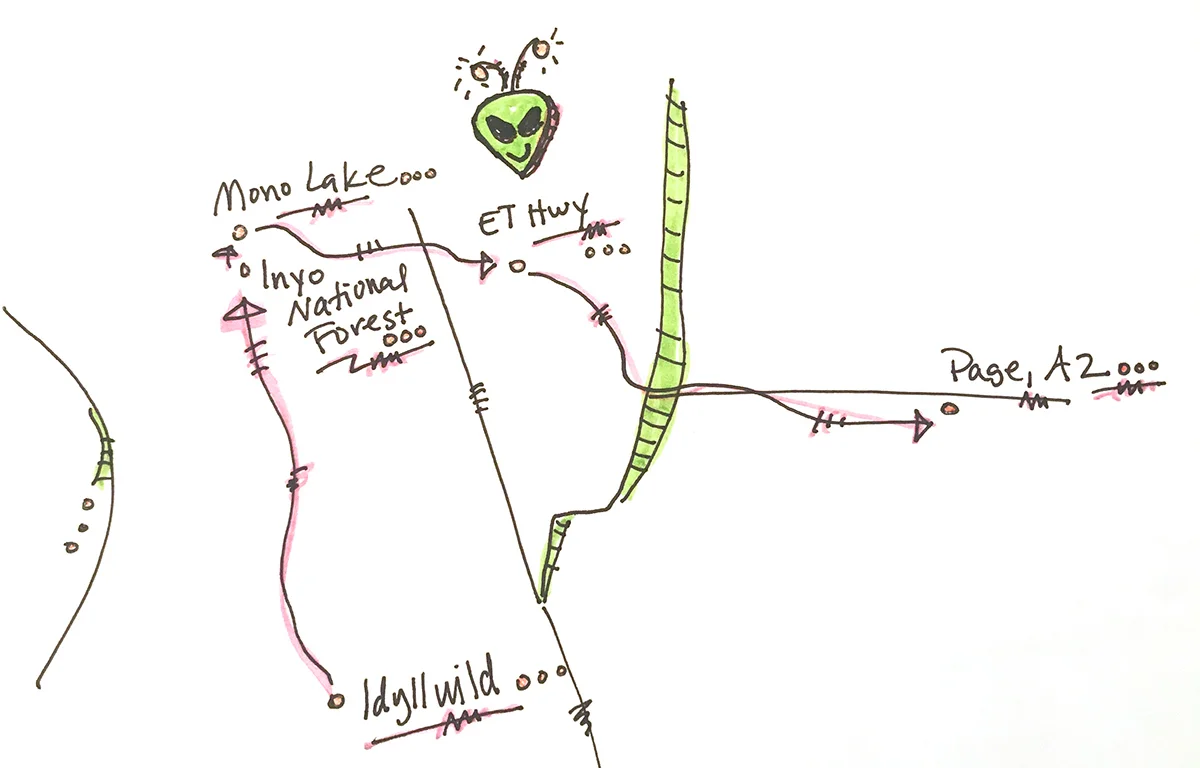 Mono Lake...
ET Hwy
...
Inyo
National
Forest
...
Page, AZ...
Idyllwild...